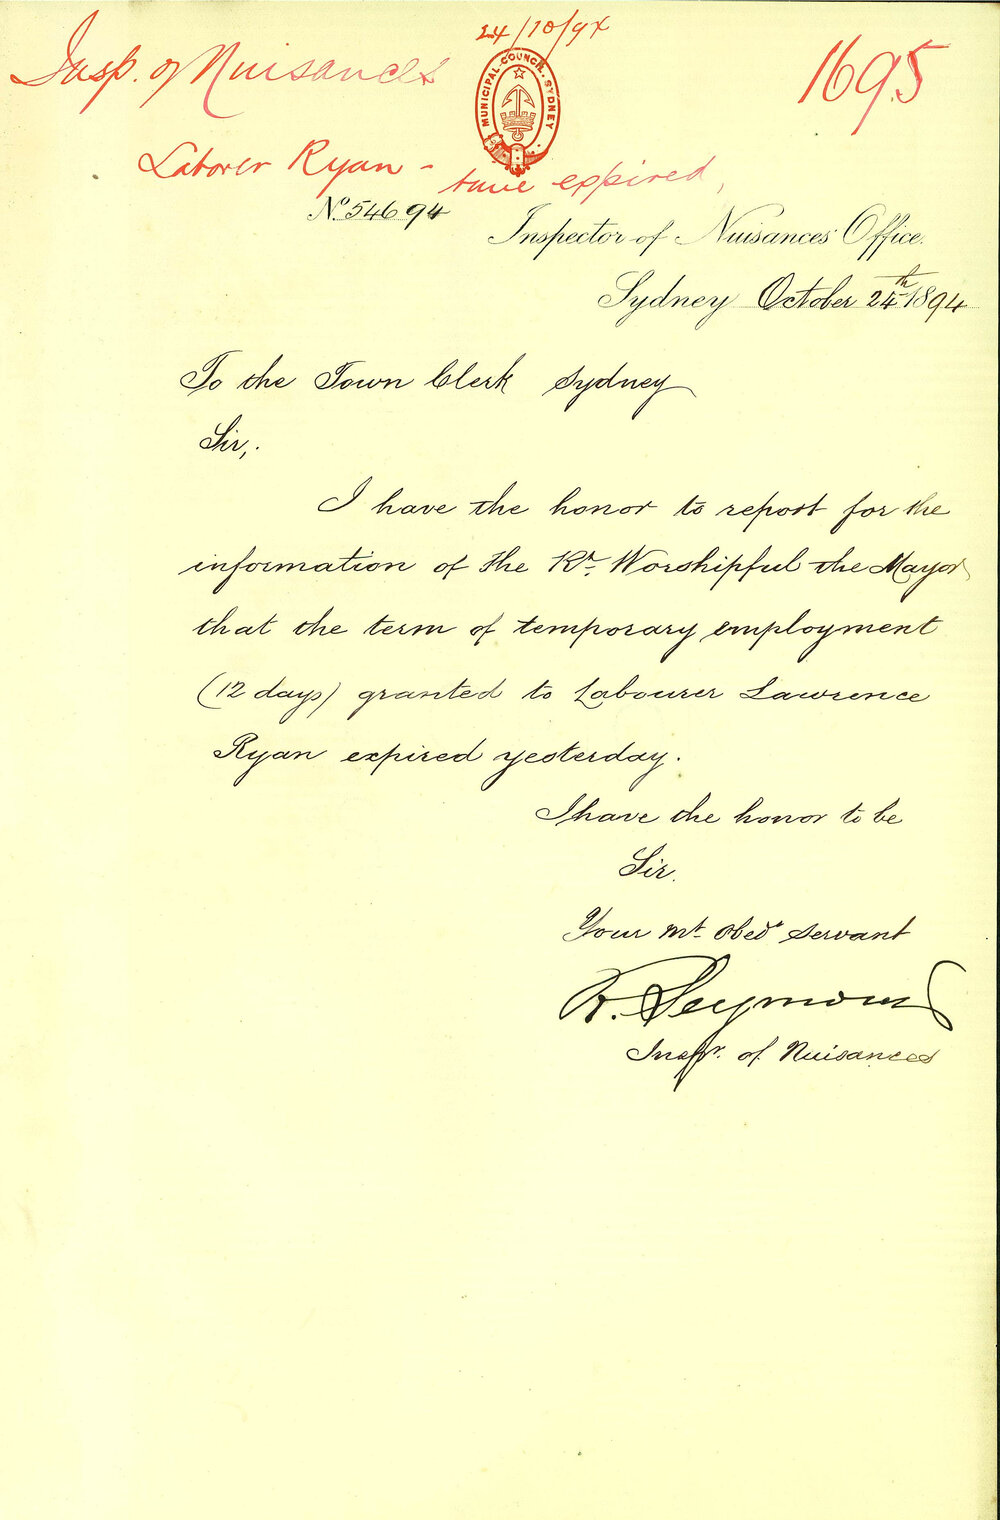 24/10/94
Insp. of Nuisances
MUNICIPAL COUNCIL SYDNEY
1695
Laborer Ryan -
have expired,
No. 546 94
Inspector of Nuisances' Office.
Sydney October 24th 1894
To the Town Clerk Sydney
Sir,.
I have the honor to report for the
information of the Rt. Worshipful the Mayor
that the term of temporary employment
(12 days) granted to Labourer Lawrence
Ryan expired yesterday.
I have the honor to be
Sir.
Your Mt. Obedt. Servant
R. Seymour
Inspr. of Nuisances